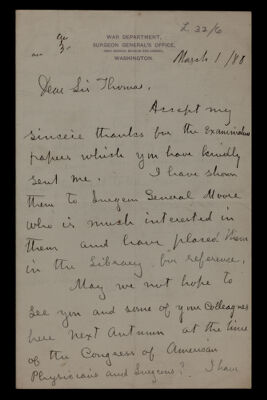 L. 32/6
WAR DEPARTMENT,
SURGEON GENERAL'S OFFICE,
WASHINGTON
March 1/88
Dear Sir Thomas,
Accept my
sincere thanks for the Examination
papers which you have kindly
sent me. I have shown
them to Surgeon General Moore
who is much interested in
them and have placed them
in the Library for reference.
May we not hope to
see you and some of your Colleagues
here next Autumn at the time
of the Congress of American
Physicians and Surgeons? I have